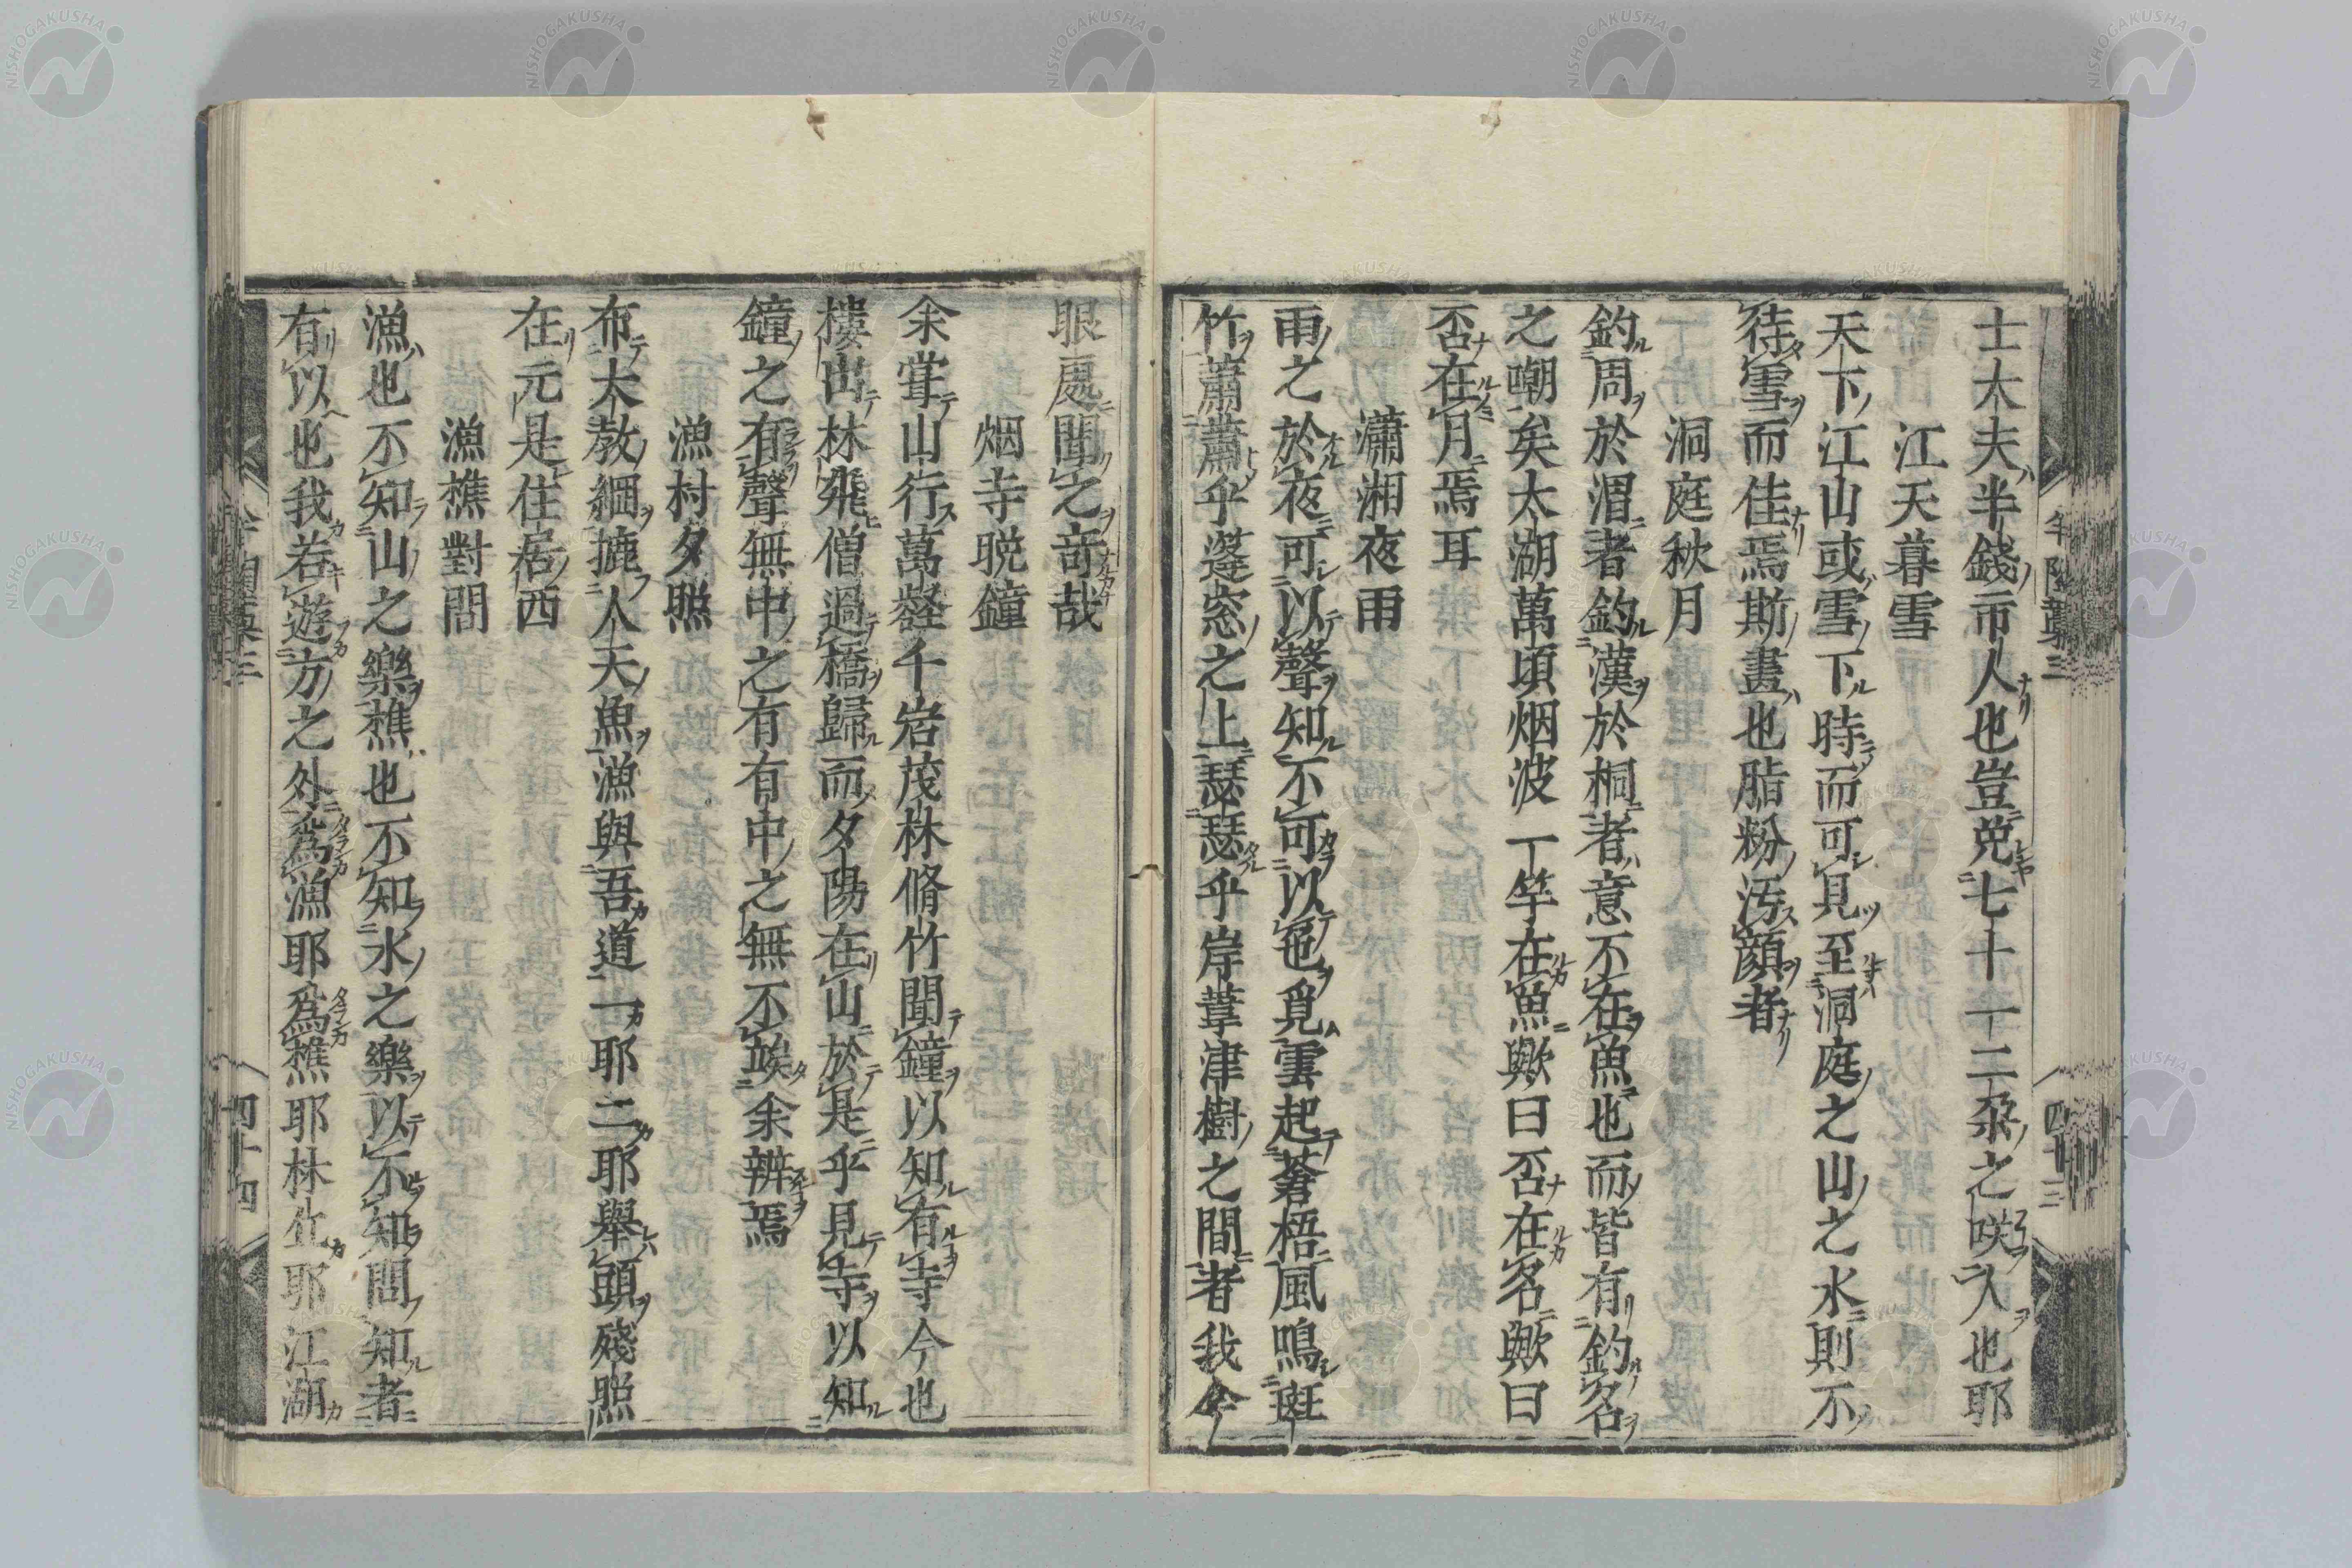 士大夫半錢市人也豈免七十一二朶之咲人也耶
江天暮雪
天下江山或雪下時而可見至洞庭之山之水則不
待雪而佳焉斯畫也脂粉汚顔者
洞庭秋月
釣周於渭者釣漢於桐者意不在魚也而皆有釣名
之嘲矣太湖萬頃烟波一竿在魚歟曰否在名歟曰
否在月焉耳
瀟湘夜雨
雨之於夜可以聲知不可以色覓雲起蒼梧風鳴斑
竹蕭蕭乎篷窓之上瑟瑟乎岸葦津樹之間者我今
眼處聞之竒哉
烟寺晩鐘
余甞山行萬壑千岩茂林脩竹聞鐘以知有寺今也
樓出林飛僧過橋歸而夕陽在山於是乎見寺以知
鐘之有聲無中之有有中之無不竢余辨焉
漁村夕照
布大教網摝人天魚漁與吾道一耶二耶舉頭殘照
在元是住居西
漁樵對問
漁也不知山之樂樵也不知水之樂以不知問知者
有以也我若遊方之外爲漁耶爲樵耶林丘耶江湖
四十三
四十四
NISHOGAKUSHA